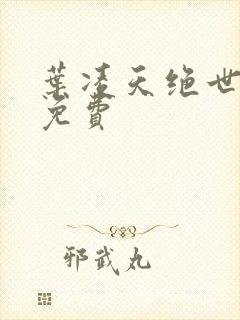 葉凌天绝世
免費
邪武丸